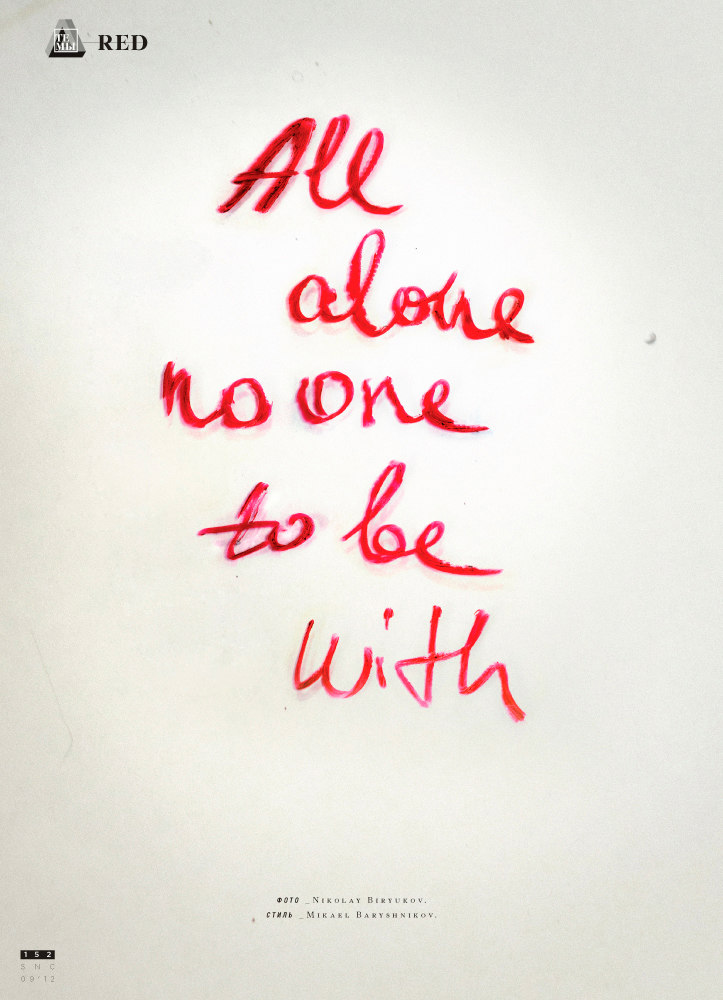 ТЕ
МЫ
RED
All
alone
no one
to be
with
ФОТО _NIKOLAY BIRYUKOV.
СТИЛЬ _MIKAEL BARYSHNIKOV.
152
SNC
09'12